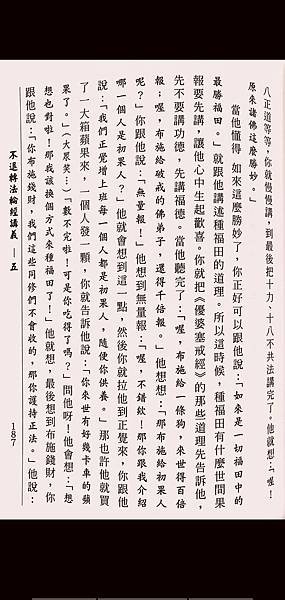 八正道等等，你就慢慢講，到最後把十力、十八不共法講完了。他就想：「喔！
原來諸佛這麼勝妙。」
當他懂得 如來這麼勝妙了，你正好可以跟他說：「如來是一切福田中的
最勝福田。」就跟他講述種福田的道理。所以這時候，種福田有什麼世間果
報要先講，讓他心中生起歡喜。你就把《優婆塞戒經》的那些道理先告訴他，
先不要講功德，先講福德。當他聽完了：「喔，布施給一條狗，來世得百倍
報；喔，布施給破戒的佛弟子，還得千倍報。」他想想：「那布施給初果人
呢？」你跟他說：「無量報！」他想到無量報：「喔，不錯欸！那你跟我介紹
哪一個人是初果人？」他就會想到這一點，然後你就拉他到正覺來，你跟他
說：「我們正覺增上班每一個人都是初果人，隨便你供養。」那也許他就買
了一大箱蘋果來，一個人發一顆，你就告訴他說：「你來世有好幾卡車的蘋
果了。」（大眾笑…）「數不完啦！可是你吃得了嗎？」問他呀！他會想：「想
想也對啦！那我該換個方式來種福田了！」他就想，最後想到布施錢財，你
跟他說：「你布施錢財，我們這些同修們不會收的，那你護持正法。」他說：
不退轉法輪經講義 — 五
187